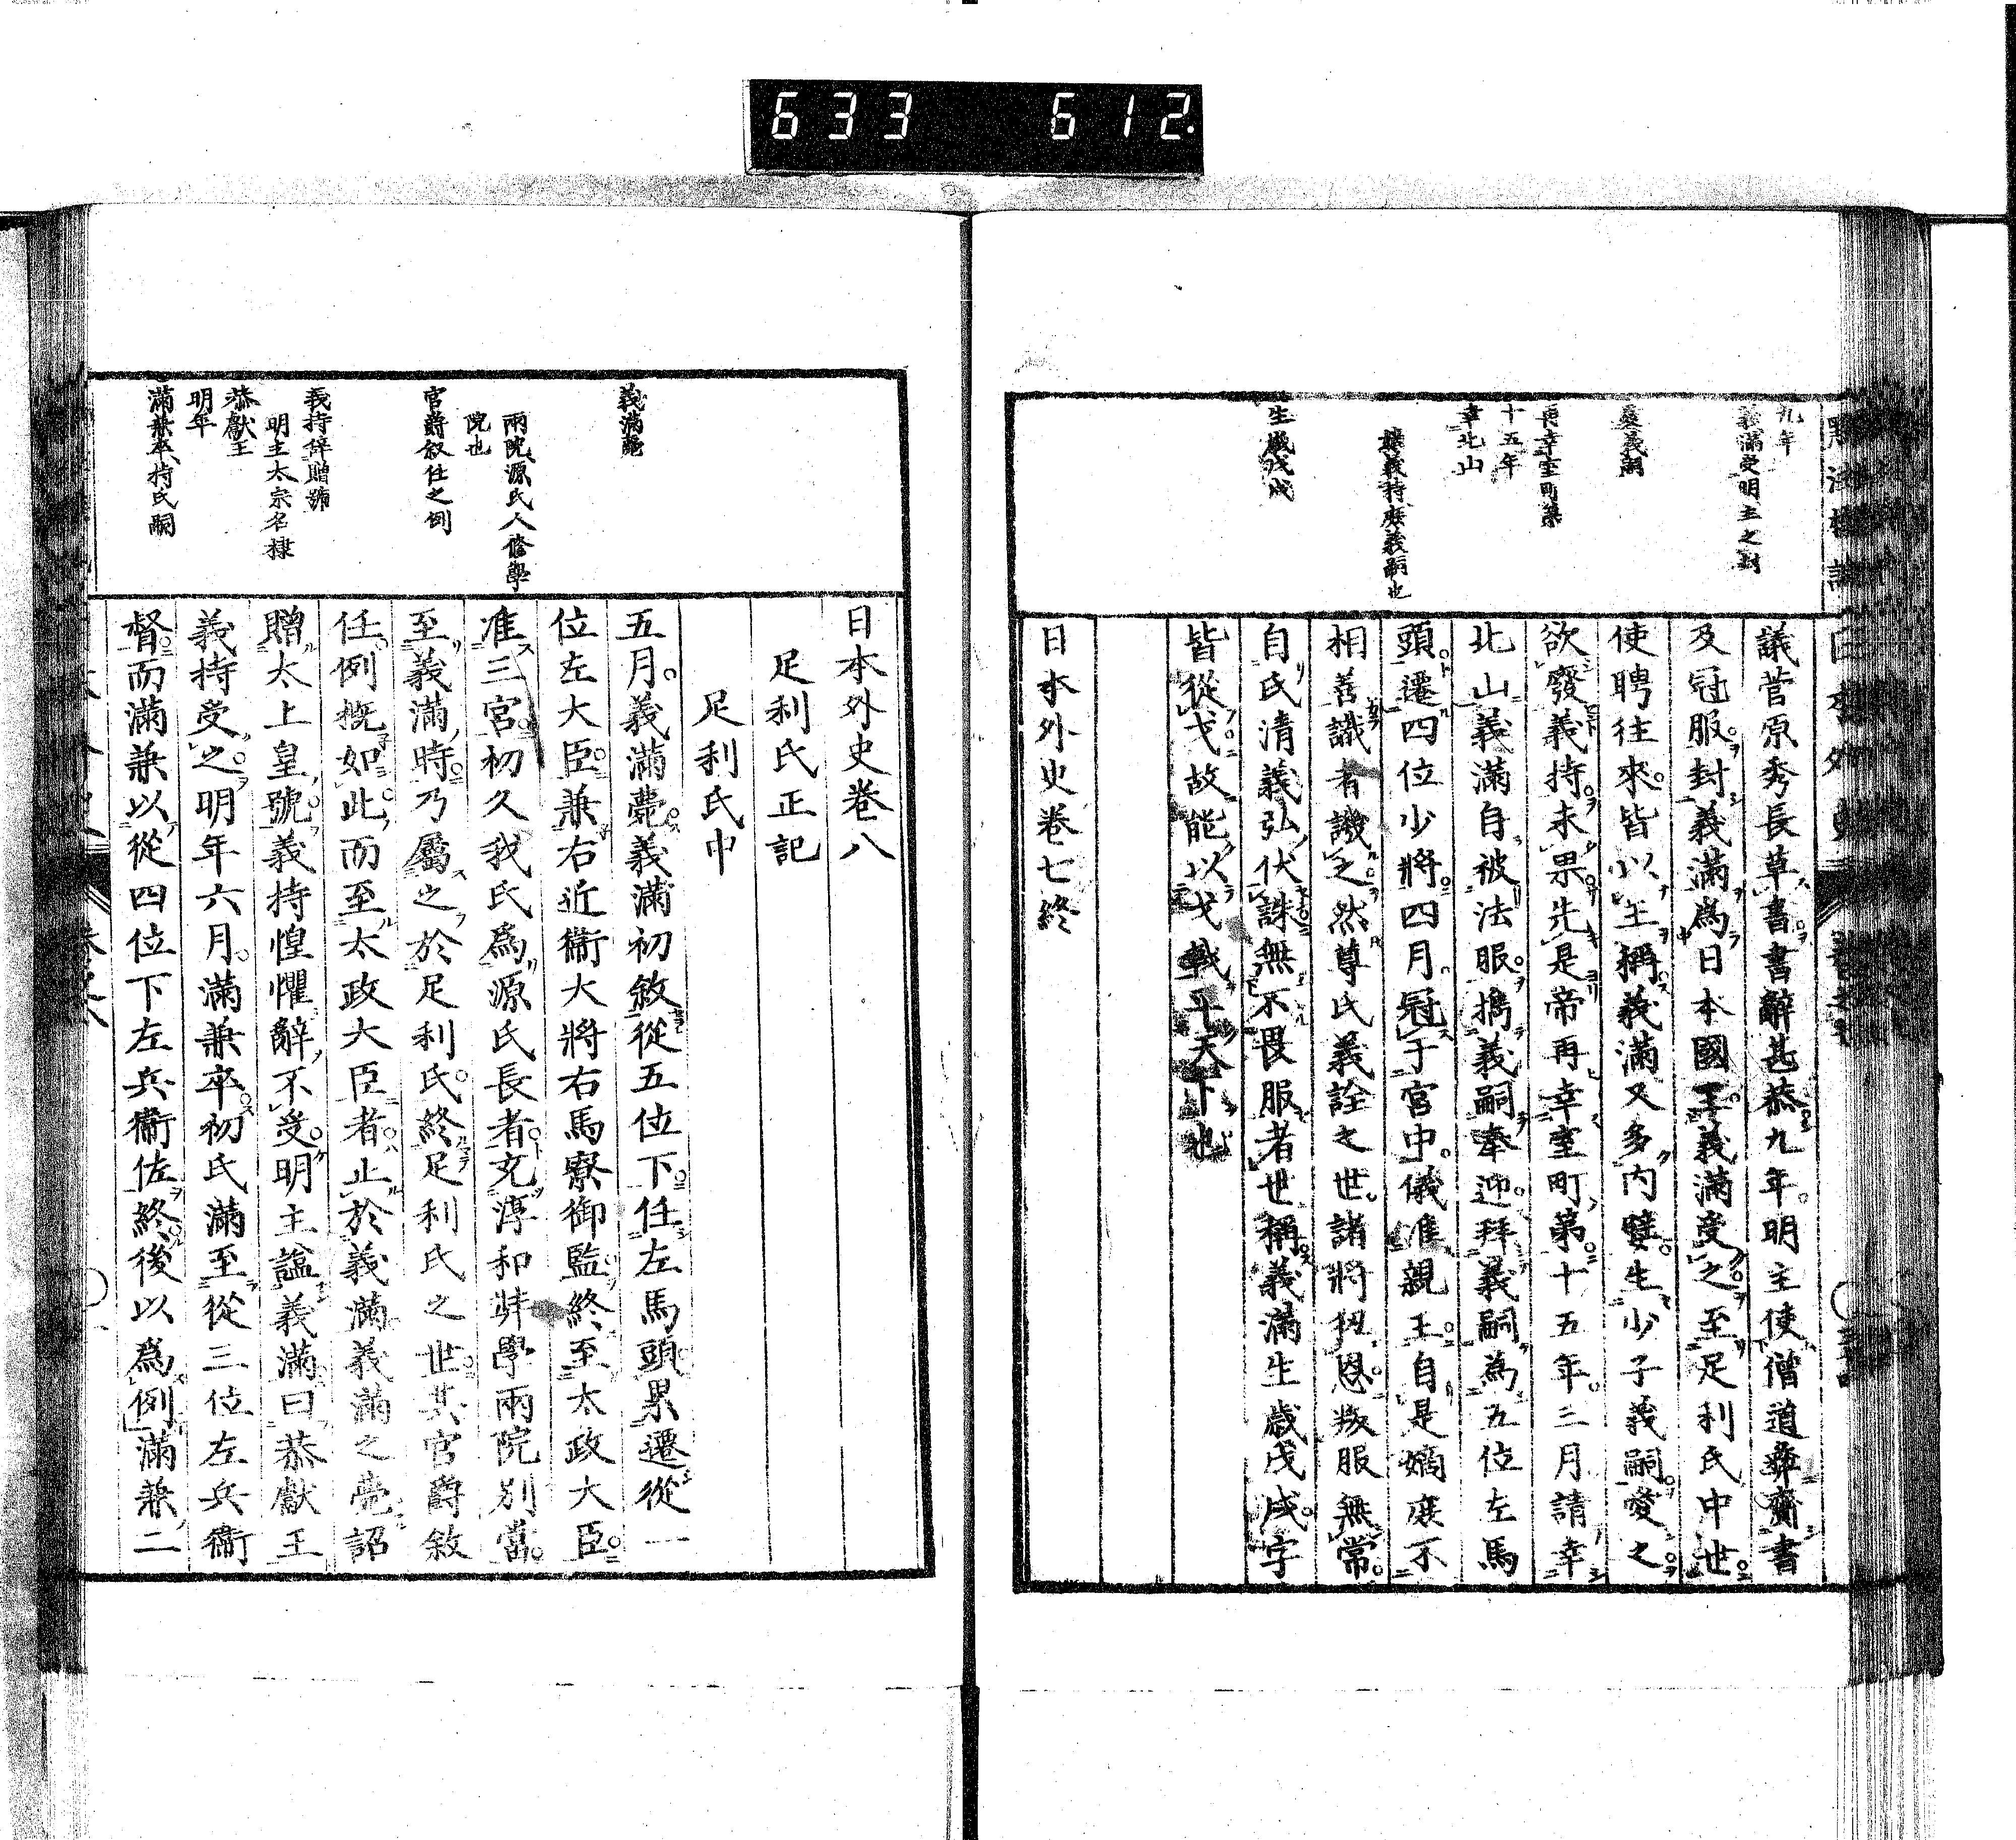 633 612.
九年
義滿受明主之封
愛義嗣
再幸室町第
十五年
幸北山
議義持廢義嗣也
生歳戊戌
議菅原秀長草書書辭甚恭九年明主使僧道彝齎書
及冠服封義滿爲日本國王義滿受之至足利氏中世
使聘往來皆以王稱義滿又多内嬖生少子義嗣愛之
欲廢義持未果先是帝再幸室町第十五年三月請幸
北山義滿自被法服擕義嗣奉迎拜義嗣爲五位左馬
頭遷四位少將四月冠于宮中儀準親王自是嫡庶不
相善識者譏之然尊氏義詮之世諸將狃恩叛服無常
自氏清義弘伏誅無不畏服者世稱義滿生歳戊戌字
皆從戈故能以戈戟平天下也
日本外史卷七終
義滿薨
兩院源氏人修學
院也
官爵叙任之例
義持辭贈號
明主太宗名棣
恭獻王
明年
滿兼卒持氏嗣
日本外史卷八
足利氏正記
足利氏中
五月義滿薨義滿初敘從五位下任左馬頭累遷從一
位左大臣兼右近衞大將右馬寮御監終至太政大臣
准三宮初久我氏爲源氏長者充淳和奘學兩院別當
至義滿時乃屬之於足利氏終足利氏之世其官爵敘
任例概如此而至太政大臣者止於義滿義滿之薨詔
贈太上皇號義持惶懼辭不受明主謚義滿曰恭獻王
義持受之明年六月滿兼卒初氏滿至從三位左兵衞
督而滿兼以從四位下左兵衞佐終後以爲例滿兼二